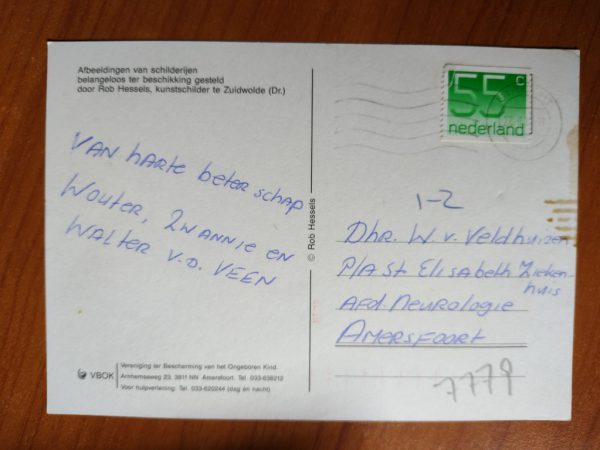 Afbeeldingen van schilderijen
belangeloos ter beschikking gesteld
door Rob Hessels, kunstschilder te Zuidwolde (Dr.)
VAN harte beterschap
Wouter, Zwannie en
WALTER v.d. VEEN
VBOK
Vereniging ter Bescherming van het Ongeboren Kind.
Arnhemseweg 23, 3811 NN Amersfoort. Tel. 033-638212
Voor hulpverlening: Tel. 033-620244 (dag én nacht)
© Rob Hessels
55 c
nederland
1-2
Dhr. W v. Veldhuizen
P/A St. Elisabeth Zieken-
huis
AFd. Neurologie
AMERSFOORT
7779